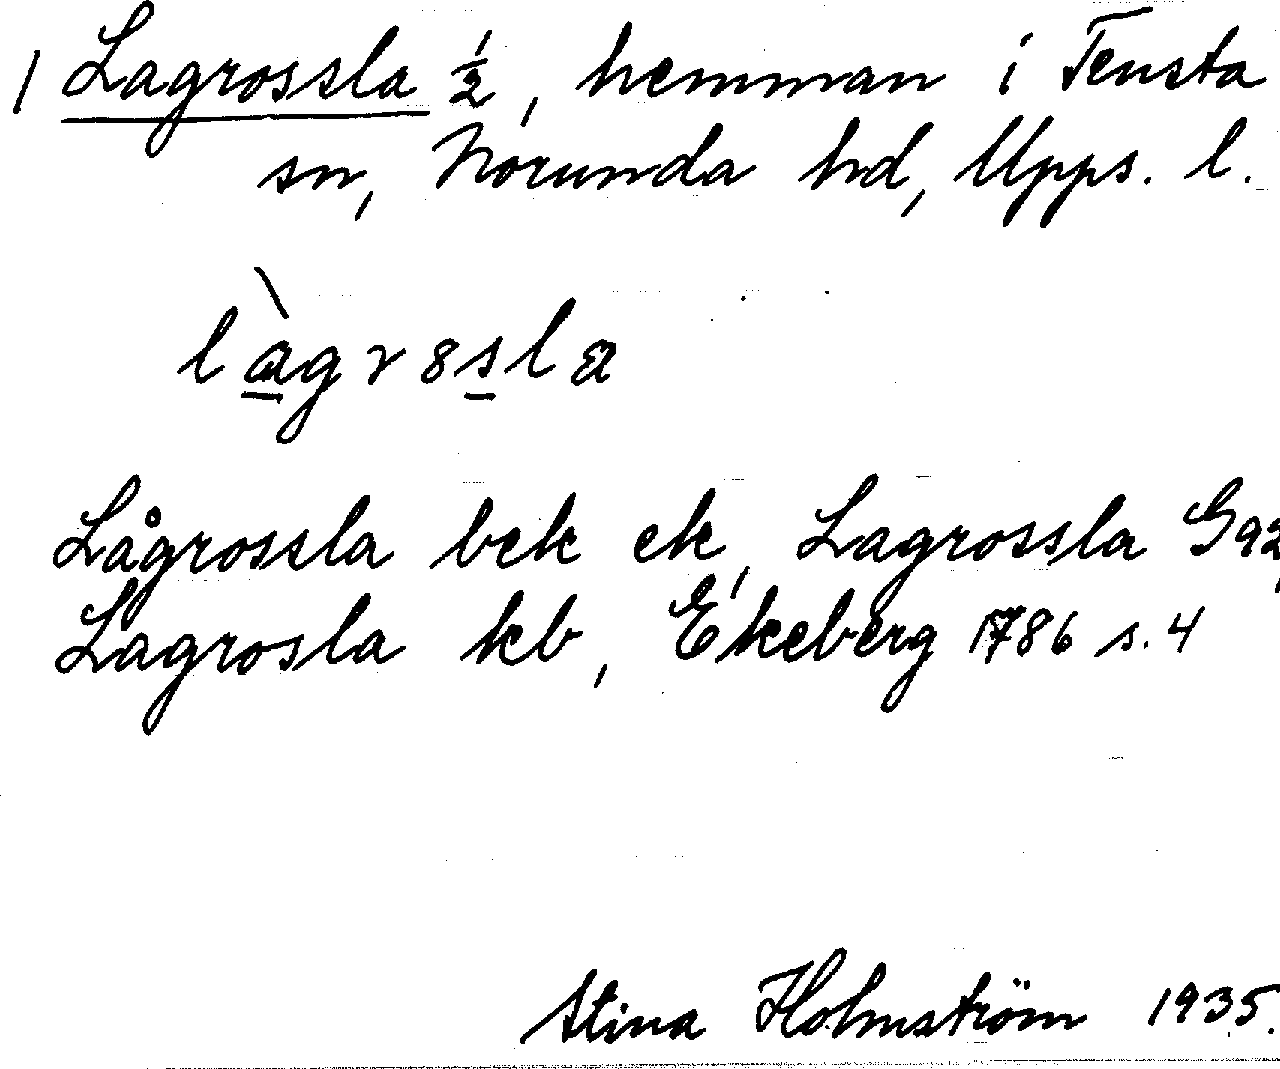 1 Lagrossla ½, hemman i Tensta
sn, Norunda hd, Upps. l.
làgr8sla
Lågrossla bek ek, Lagrossla G92,
Lagrosla kb, Ekeberg 1786 s. 4
Stina Holmström 1935.